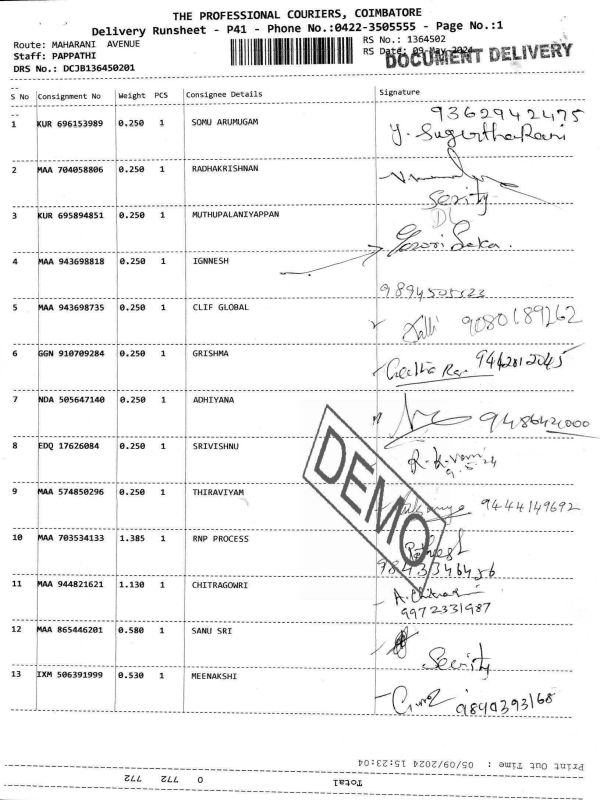 THE PROFESSIONAL COURIERS, COIMBATORE
Delivery Runsheet - P41 - Phone No.:0422-3505555 - Page No.:1
Route: MAHARANI AVENUE
RS No.: 1364502
Staff: PAPPATHI
RS Date: 09-May-2024
DOCUMENT DELIVERY
DRS No.: DCJB136450201
S No Consignment No Weight PCS Consignee Details Signature
9362942475
1 KUR 696153989 0.250 1 SOMU ARUMUGAM Y. SugirthaRani
2 MAA 704058806 0.250 1 RADHAKRISHNAN
Serity
3 KUR 695894851 0.250 1 MUTHUPALANIYAPPAN
4 MAA 943698818 0.250 1 IGNNESH
5 MAA 943698735 0.250 1 CLIF GLOBAL 9080189262
6 GGN 910709284 0.250 1 GRISHMA 9442812045
7 NDA 505647140 0.250 1 ADHIYANA 9486421000
8 EDQ 17626084 0.250 1 SRIVISHNU
9.5.24
DEMO
9 MAA 574850296 0.250 1 THIRAVIYAM 9444149692
10 MAA 703534133 1.385 1 RNP PROCESS
9843346456
11 MAA 944821621 1.130 1 CHITRAGOWRI
9972331987
12 MAA 865446201 0.580 1 SANU SRI
Serity
13 IXM 506391999 0.530 1 MEENAKSHI 9840393168
Print Out Time : 05/09/2024 15:23:04
Total 0 772 772